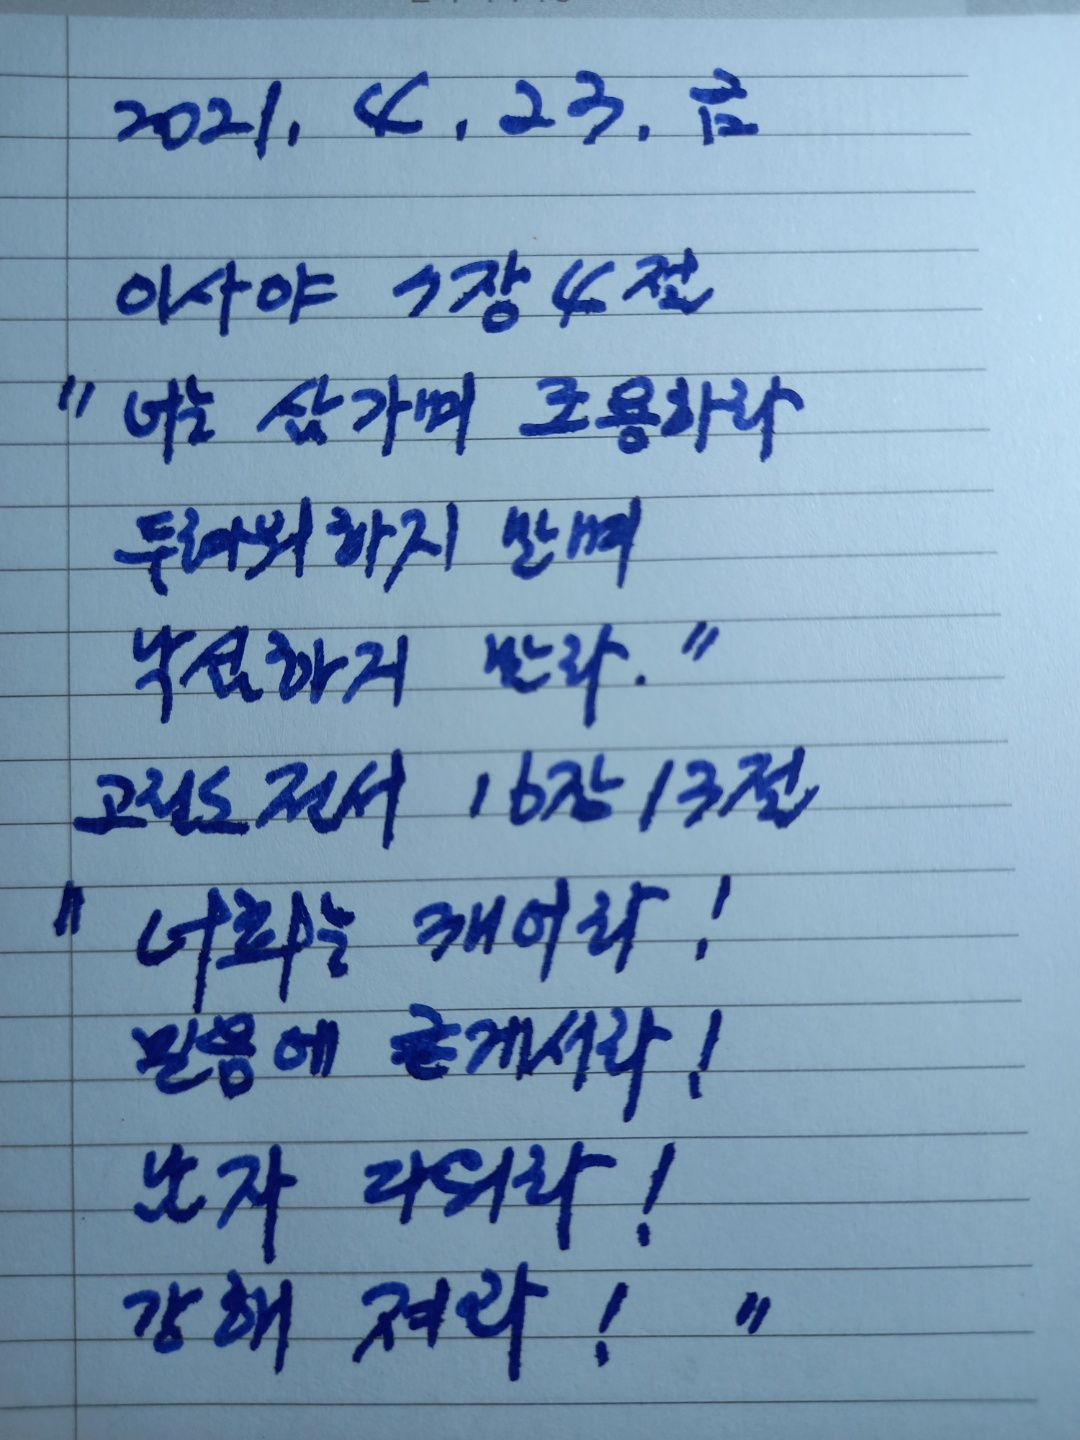 2021. 4. 23. 금
이사야 7장 4절
" 너는 삼가며 조용하라
두려워하지 말며
낙심하지 말라. "
고린도전서 16장 13절
" 너희는 깨어라 !
믿음에 굳게서라 !
남자 다워라 !
강해 져라 ! "